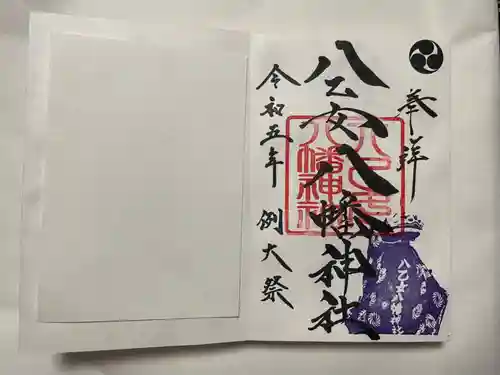 奉拝
八乙女八幡神社
八乙女
八幡神社
令和五年 例大祭
八乙女八幡神社